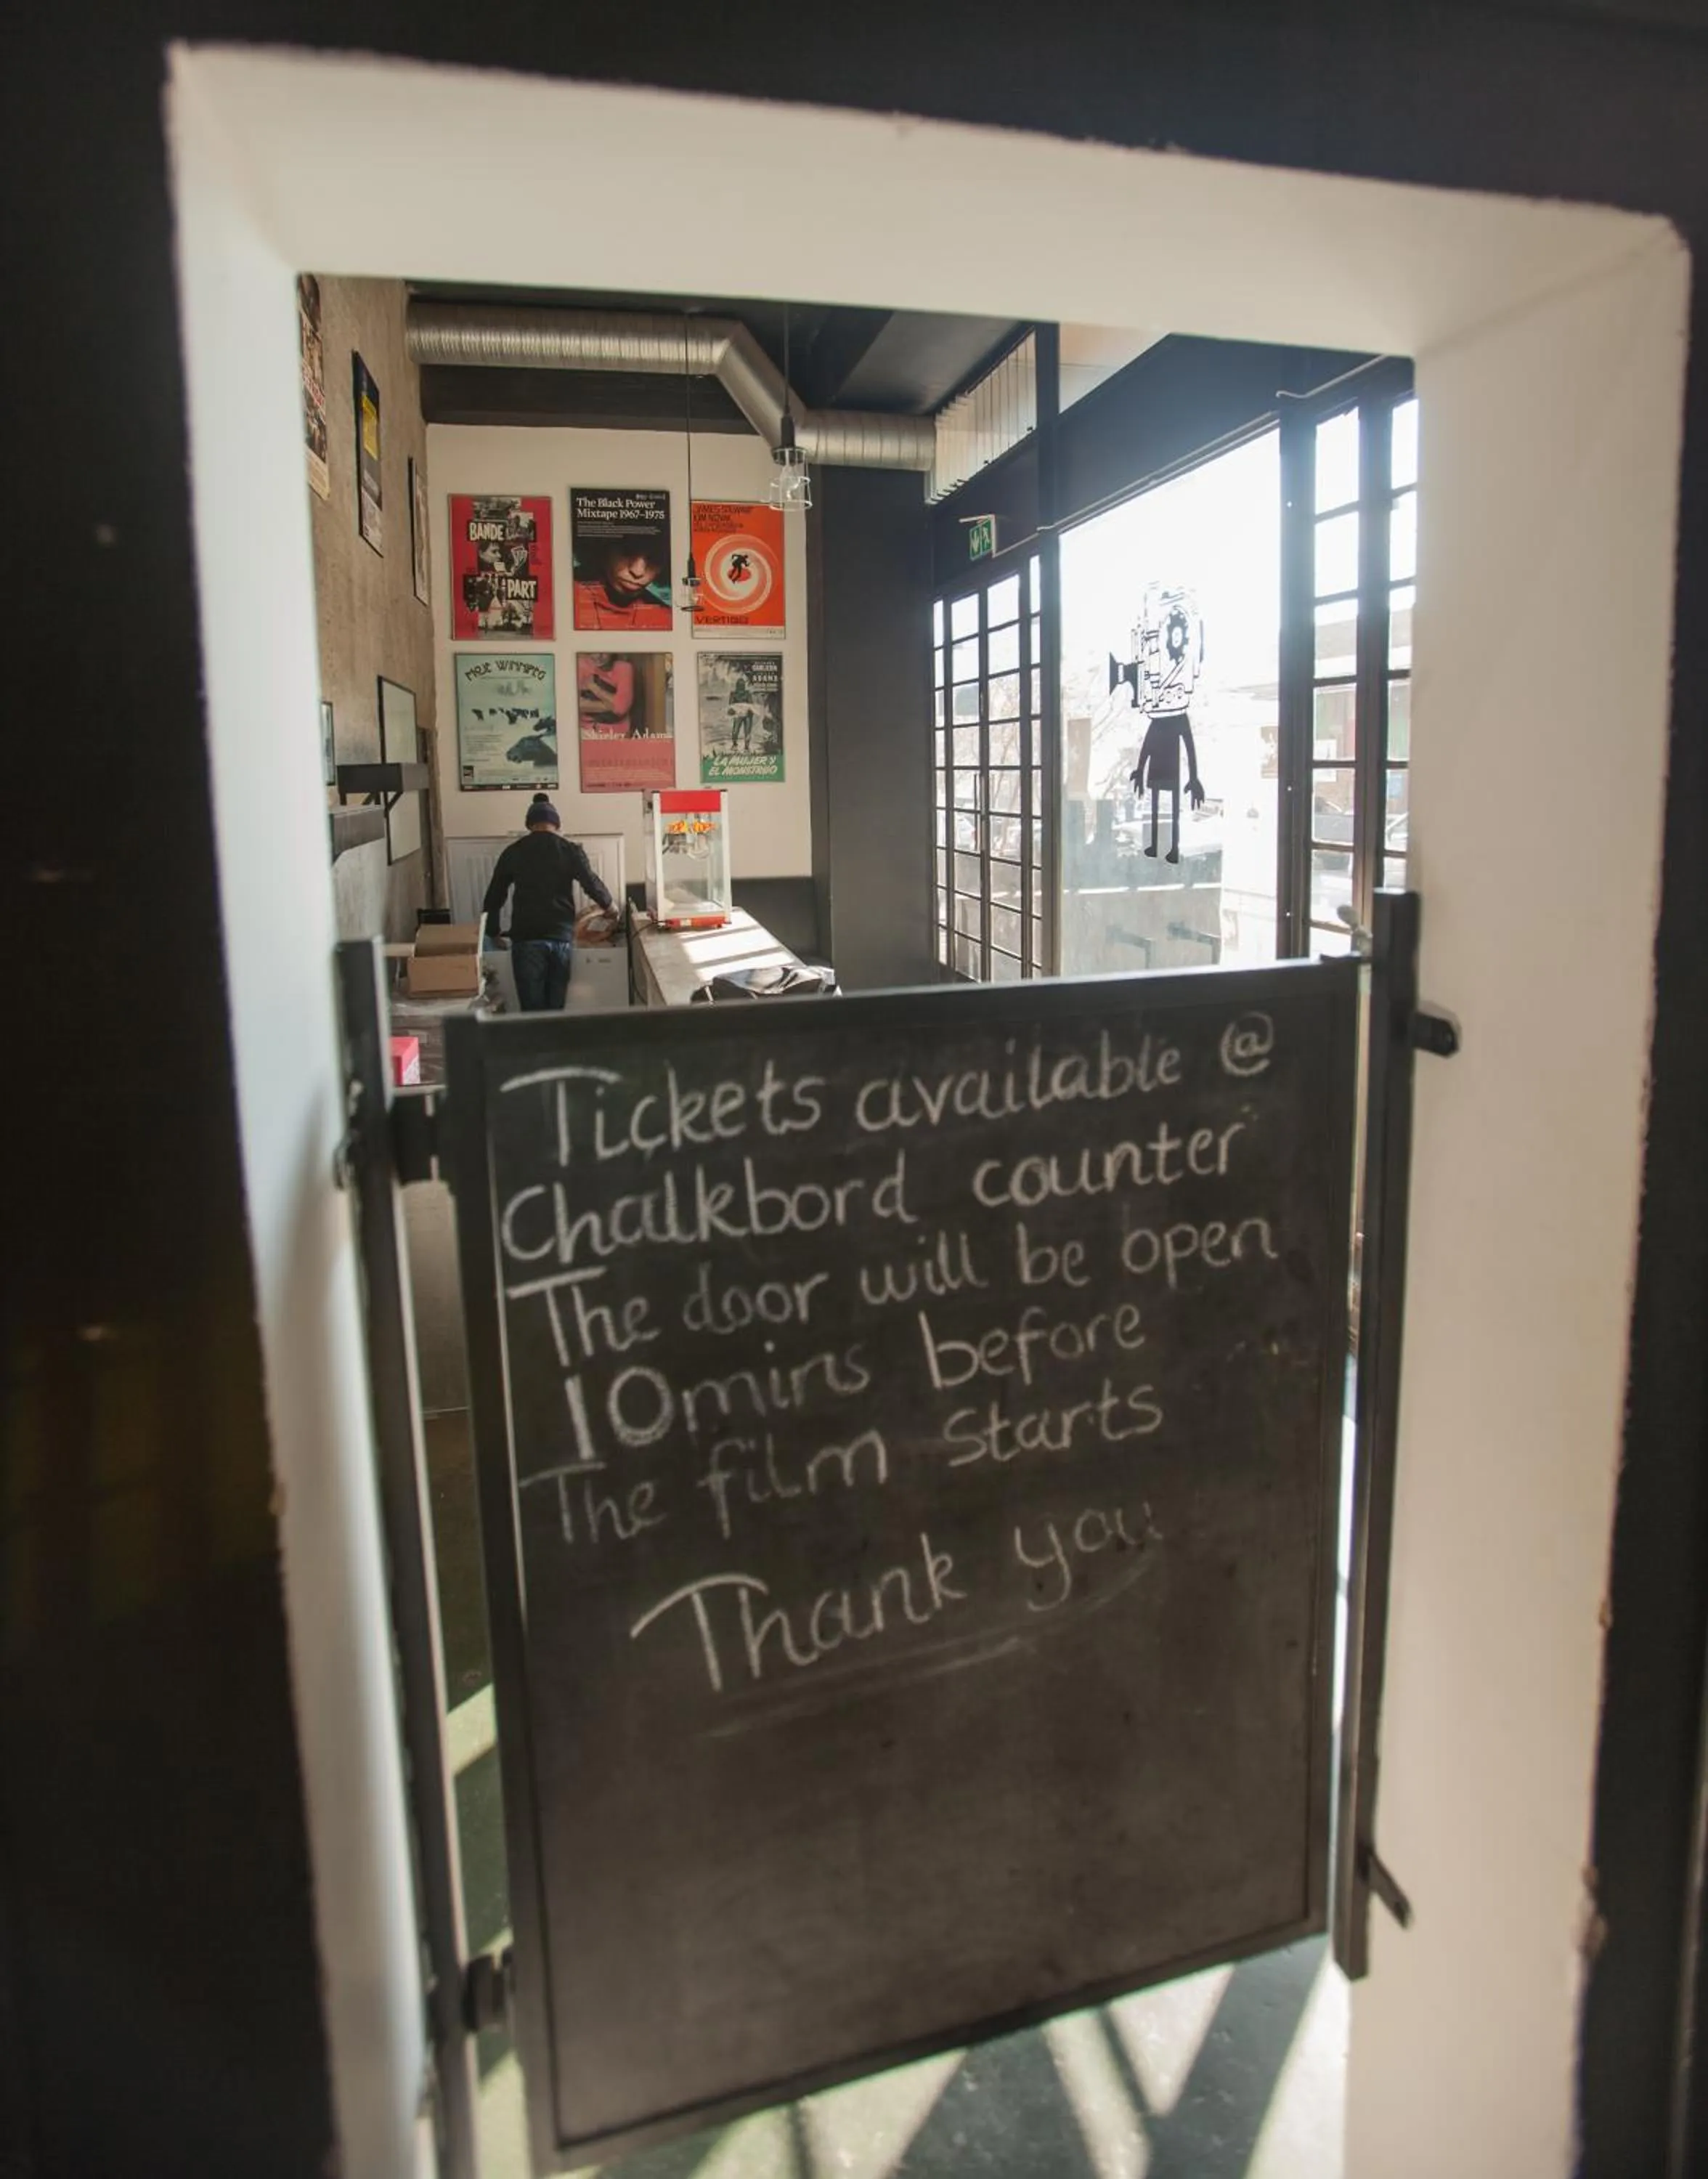 BANDE
À PART
The Black Power
Mixtape 1967–1975
JAMES STEWART
KIM NOVAK
VERTIGO
Shirley Adams
LA MUJER Y
EL MONSTRUO
Tickets available @
Chalkbord counter
The door will be open
10mins before
The film starts
Thank you